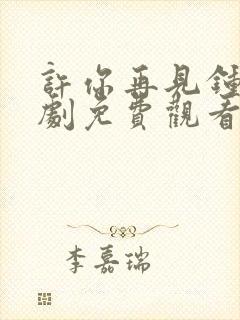 許你再見鍾
劇免費觀看
李嘉瑞